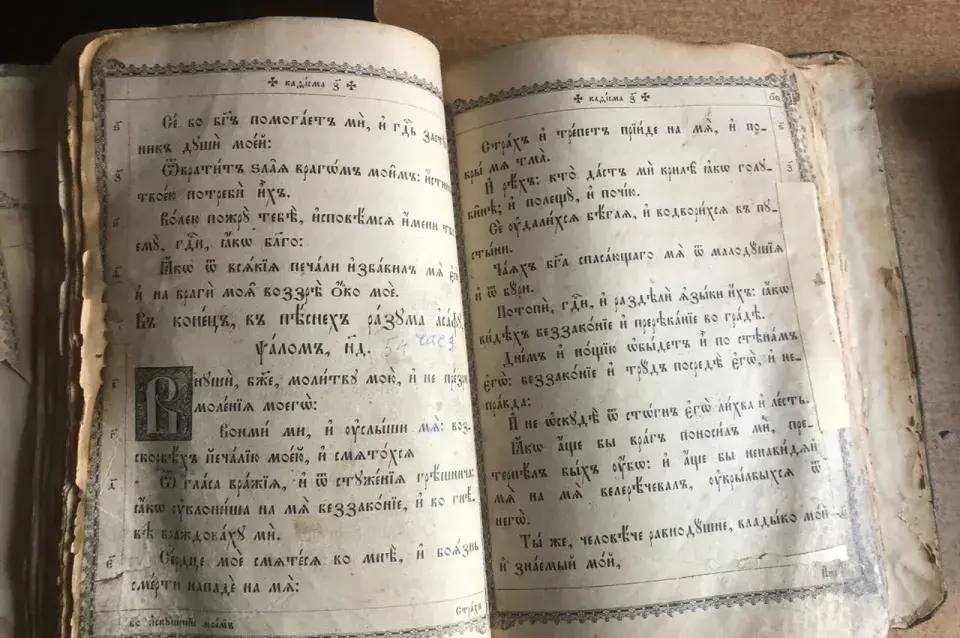 ✠ каѳі́сма з҃ ✠
Се́ бо бг҃ъ помога́етъ мѝ, и҆ гдⷭ҇ь засту́
никъ дꙋшѝ мое́й:
Ѿврати́тъ ѕла̑ѧ врагѡ́мъ мои̑мъ: и҆́стиною
твое́ю потребѝ и҆̀хъ.
Во́лею пожрꙋ̀ тебѣ̀, и҆сповѣ́мсѧ и҆́мени тво
емꙋ̀, гдⷭ҇и, ꙗ҆́кѡ бла́го:
Ꙗ҆́кѡ ѿ всѧ́кїѧ печа́ли и҆зба́вилъ мѧ̀ є҆сѝ
и҆ на врагѝ моѧ̑ воззрѣ̀ ѻ҆́ко моѐ.
Въ коне́цъ, въ пѣ́снехъ ра́зꙋма а҆са́фꙋ,
ѱало́мъ, н҃д. 54
Внꙋшѝ, бж҃е, моли́твꙋ мою̀, и҆ не пре́зри
моле́нїѧ моегѡ̀:
Вонмѝ ми, и҆ ᲂу҆слы́ши мѧ̀: воз
скорбѣ́хъ печа́лїю мое́ю, и҆ смѧто́хсѧ
Ѿ гла́са вра́жїѧ, и҆ ѿ стꙋже́нїѧ грѣ́шнича:
ꙗ҆́кѡ ᲂу҆клони́ша на мѧ̀ беззако́нїе, и҆ во гнѣ́-
вѣ враждова́хꙋ мѝ.
Се́рдце моѐ смѧте́сѧ во мнѣ̀, и҆ боѧ́знь
сме́рти нападѐ на мѧ̀:
Стра́хъ
✠ каѳі́сма з҃ ✠
Стра́хъ и҆ тре́петъ прїи́де на мѧ̀, и҆ по-
кры́ мѧ тма̀.
И҆ рѣ́хъ: кто̀ да́стъ мѝ крилѣ̀ ꙗ҆́кѡ голꙋ-
би̑нѣ; и҆ полещꙋ̀, и҆ почі́ю.
Сѐ ᲂу҆дали́хсѧ бѣ́гаѧ, и҆ водвори́хсѧ въ пꙋ-
сты́ни.
Ча́ѧхъ бг҃а спаса́ющаго мѧ̀ ѿ малодꙋ́шїѧ
и҆ ѿ бꙋ́ри.
Потопѝ, гдⷭ҇и, и҆ раздѣлѝ ѧ҆зы́ки и҆́хъ: ꙗ҆́кѡ
ви́дѣхъ беззако́нїе и҆ пререка́нїе во гра́дѣ.
Дне́мъ и҆ но́щїю ѡ҆бы́детъ и҆̀ по стѣна́мъ
є҆гѡ̀: беззако́нїе и҆ трꙋ́дъ посредѣ̀ є҆гѡ̀, и҆ не-
пра́вда:
И҆ не ѡ҆скꙋдѣ̀ ѿ сто́гнъ є҆гѡ̀ ли́хва и҆ ле́сть.
Ꙗ҆́кѡ а҆́ще бы вра́гъ поноси́лъ мѝ, пре-
терпѣ́лъ бы́хъ ᲂу҆́бѡ: и҆ а҆́ще бы ненави́дѧй
мѧ̀ на мѧ̀ велерѣ́чевалъ, ᲂу҆кры́лбыхсѧ ѿ
негѡ̀.
Ты́ же, человѣ́че равнодꙋ́шне, влады́ко мо́й
и҆ зна́емый мо́й,